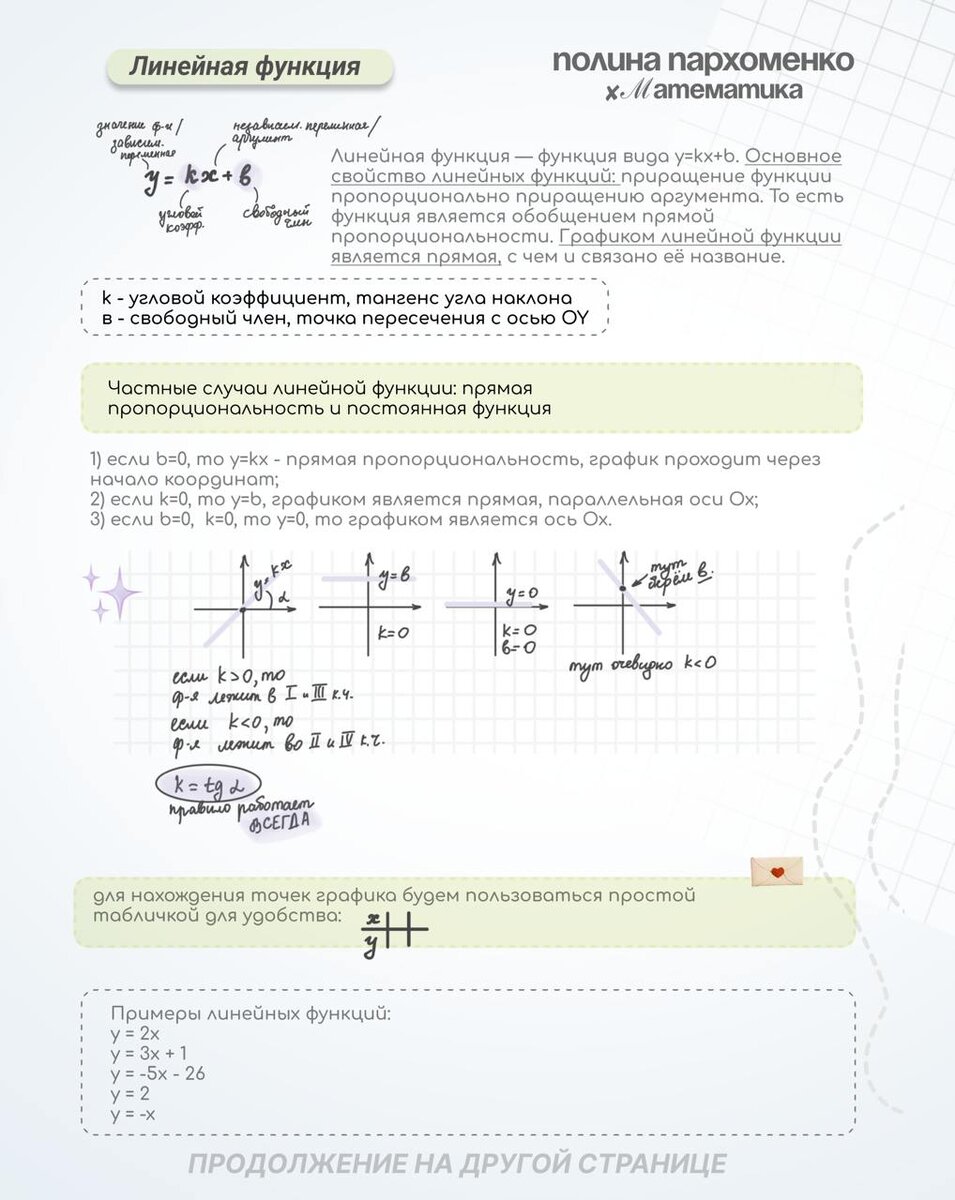 Линейная функция
полина пархоменко
x Математика
значение ф-и/
зависим.
переменная
независим. переменная/
аргумент
y = kx + в
угловой
коэфф.
свободный
член
Линейная функция — функция вида y=kx+b. Основное
свойство линейных функций: приращение функции
пропорционально приращению аргумента. То есть
функция является обобщением прямой
пропорциональности. Графиком линейной функции
является прямая, с чем и связано её название.
k - угловой коэффициент, тангенс угла наклона
в - свободный член, точка пересечения с осью OY
Частные случаи линейной функции: прямая
пропорциональность и постоянная функция
1) если b=0, то y=kx - прямая пропорциональность, график проходит через
начало координат;
2) если k=0, то y=b, графиком является прямая, параллельная оси Ox;
3) если b=0, k=0, то y=0, то графиком является ось Ox.
y=kx
α
y=в
k=0
y=0
k=0
в=0
тут
берём в.
тут очевидно k<0
если k>0, то
ф-я лежит в I и III к.ч.
если k<0, то
ф-я лежит во II и IV к.ч.
k = tg α
правило работает
ВСЕГДА
для нахождения точек графика будем пользоваться простой
табличкой для удобства:
x
y
Примеры линейных функций:
y = 2x
y = 3x + 1
y = -5x - 26
y = 2
y = -x
ПРОДОЛЖЕНИЕ НА ДРУГОЙ СТРАНИЦЕ